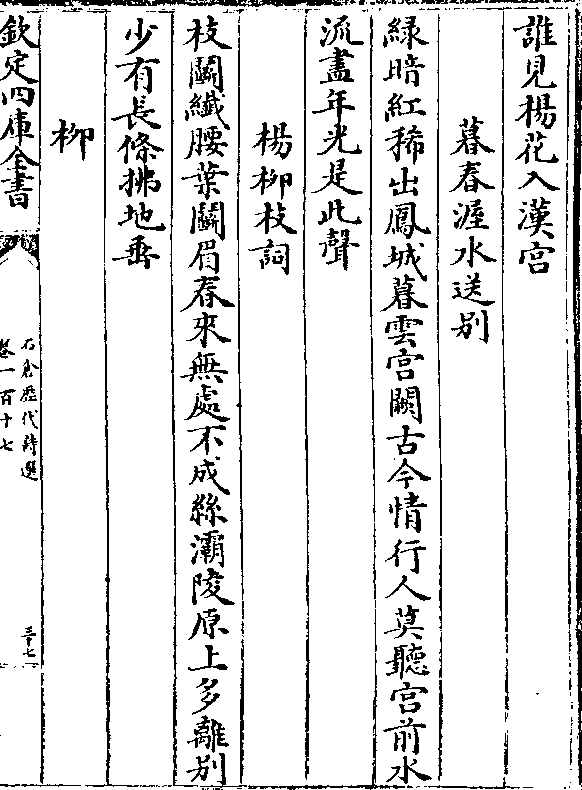 誰見楊花入漢宫
暮春滻水送别
緑暗紅稀出鳳城暮雲宫闕古今情行人莫聽宫前水
流盡年光是此聲
楊柳枝詞
枝鬭纎腰葉鬭眉春來無處不成絲灞陵原上多離别
少有長條拂地垂
柳
欽定四庫全書
石倉歷代詩選
卷一百十七
三十七